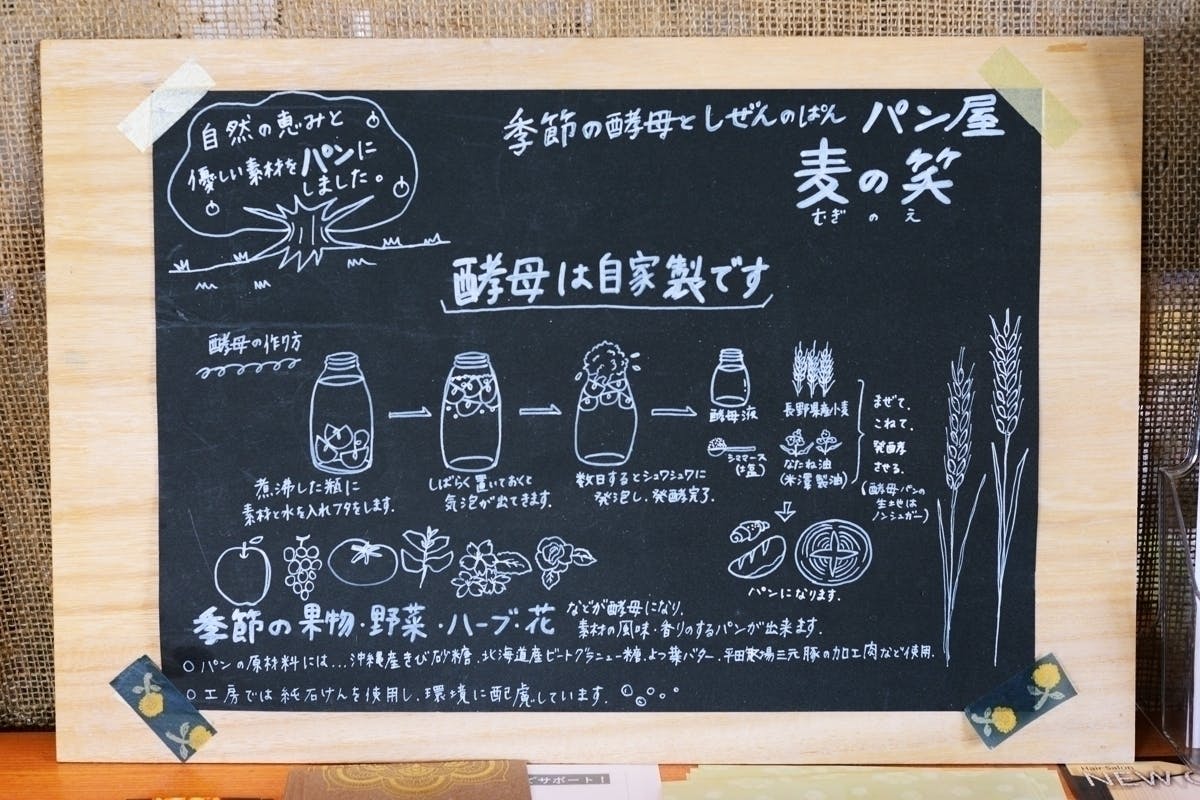 自然の恵みと
優しい素材をパンに
しました。
季節の酵母としぜんのぱん パン屋
麦の笑
むぎのえ
酵母は自家製です
酵母の作り方
煮沸した瓶に
素材と水を入れフタをします.
しばらく置いておくと
気泡が出てきます.
数日するとシュワシュワに
発泡し、発酵完了.
酵母液
長野県産小麦
シママース
(塩)
なたね油
(米澤製油)
まぜて、
こねて、
発酵
させる.
(酵母パンの
生地は
ノンシュガー)
パンになります.
季節の果物・野菜・ハーブ・花
などが酵母になり、
素材の風味・香りのするパンが出来ます.
○ パンの原材料には…沖縄産きび砂糖、北海道産ビートグラニュー糖、よつ葉バター、平田牧場三元豚の加工肉など使用.
○ 工房では純石けんを使用し、環境に配慮しています.
でサポート!
Hair Salon
NEW